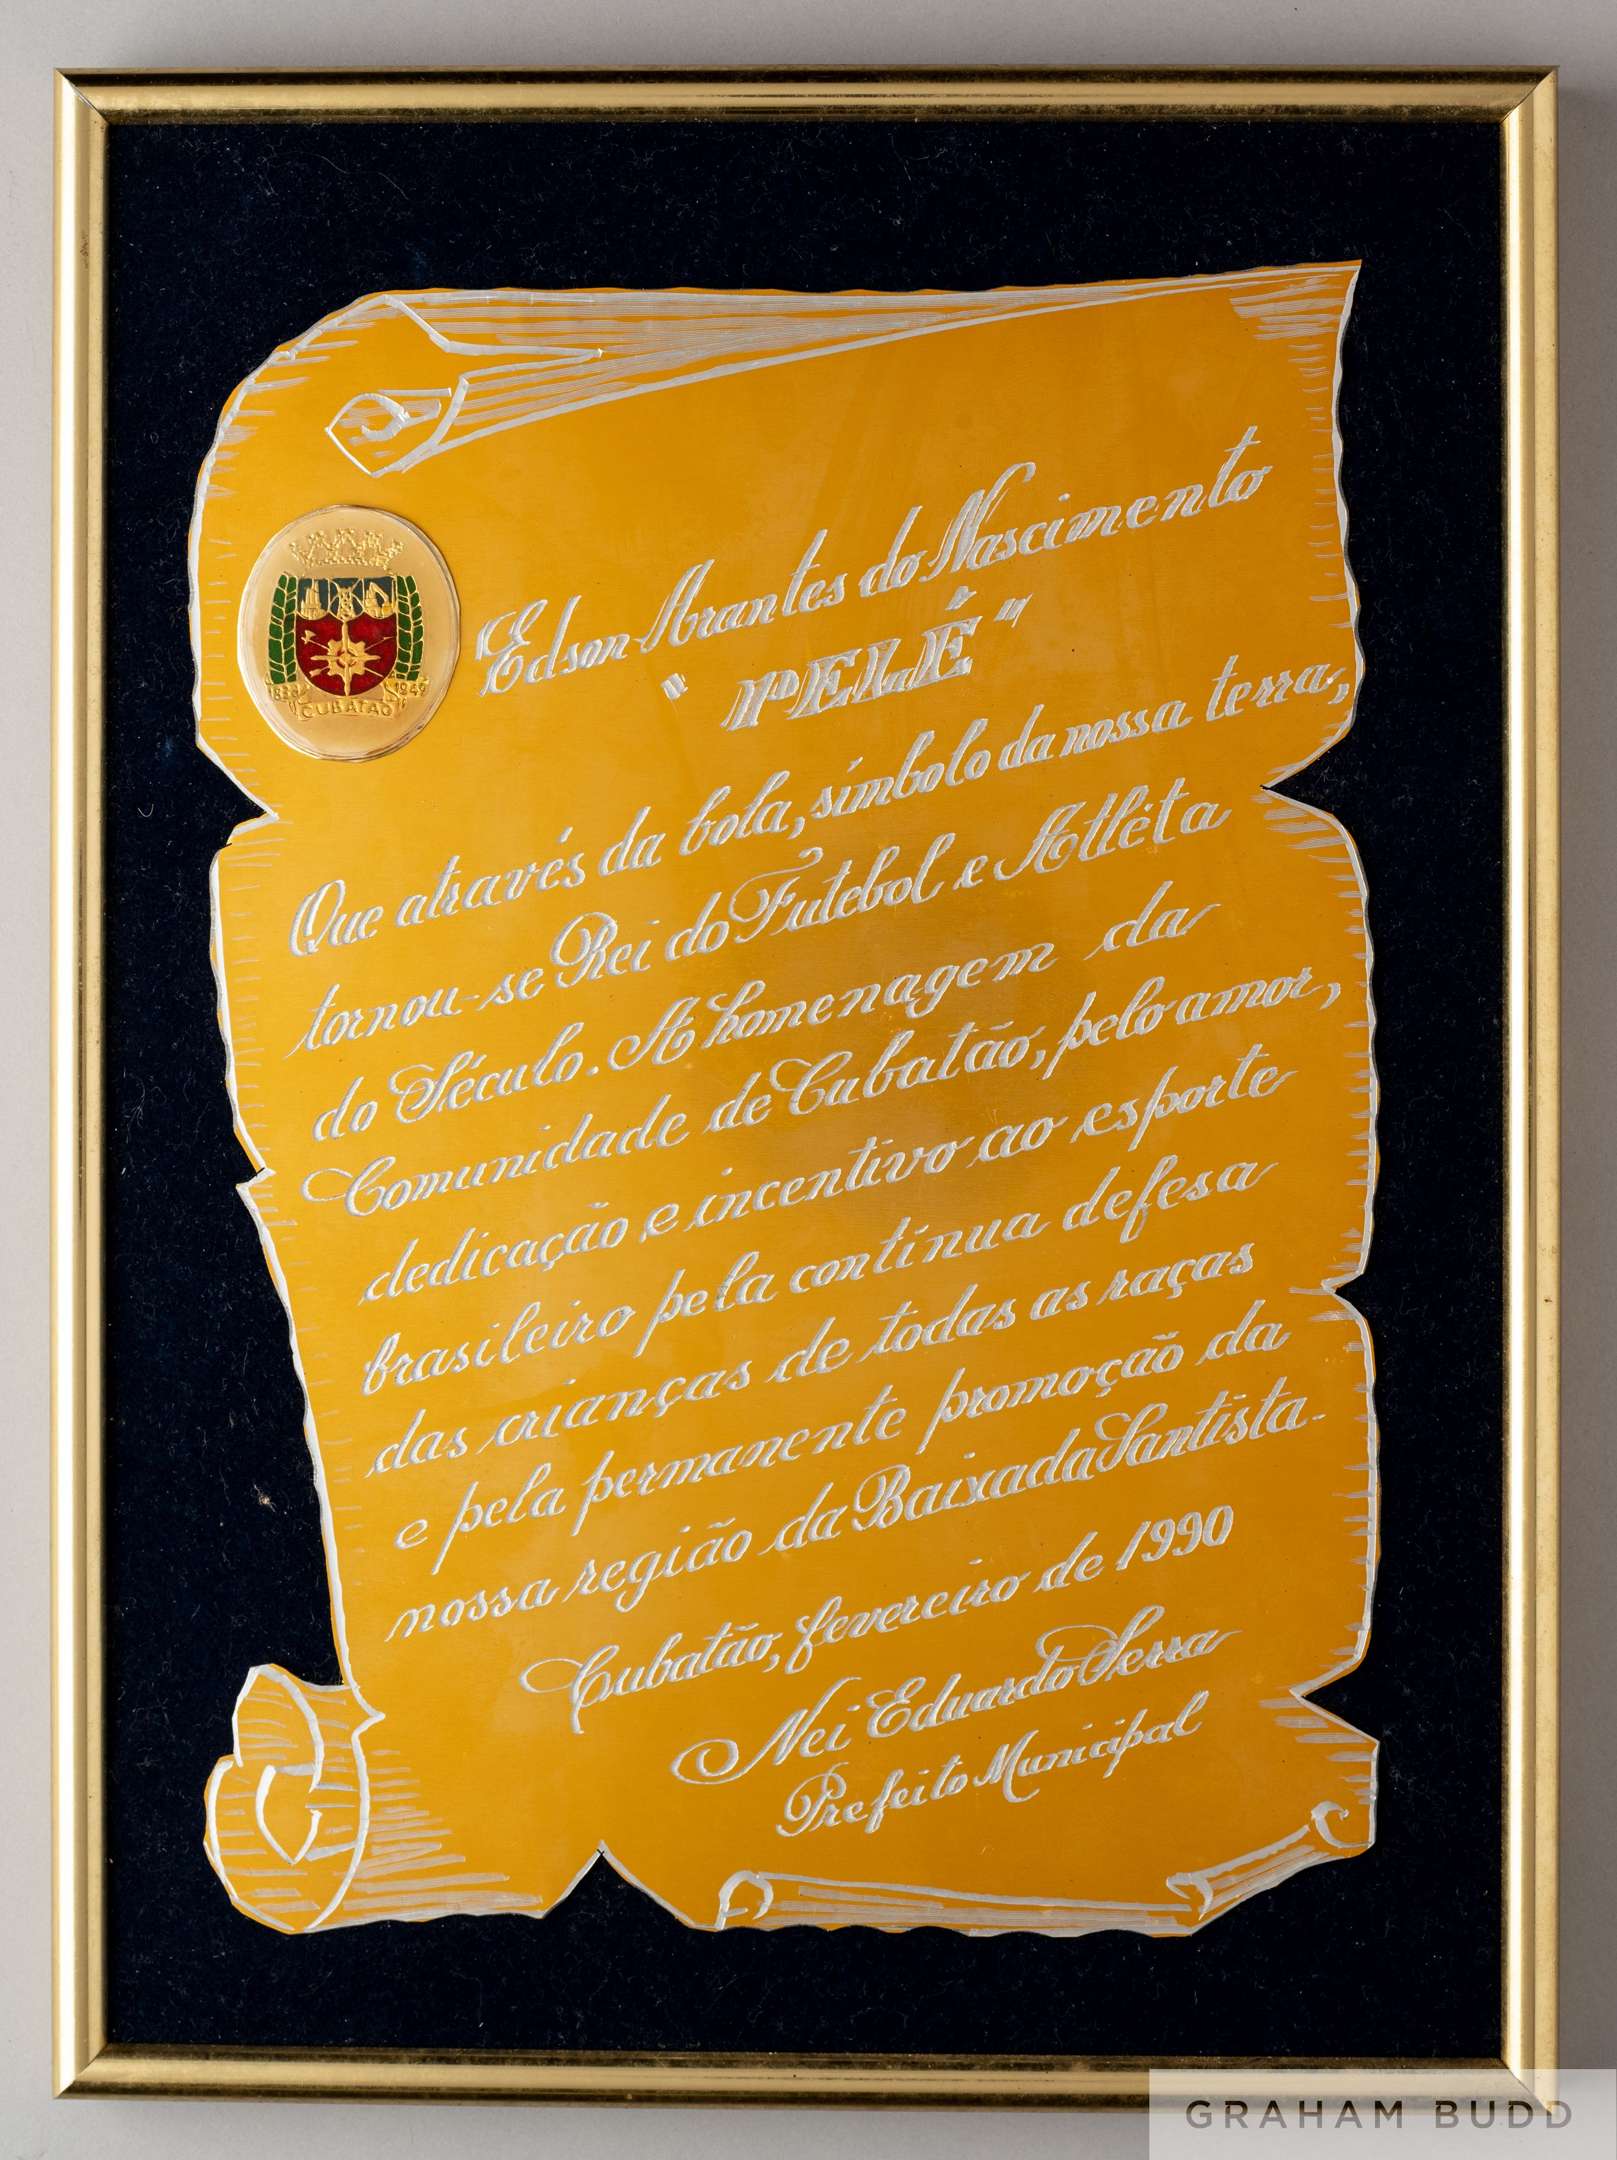 Edson Arantes do Nascimento
" PELÉ "
1833 1949
CUBATÃO
Que através da bola, símbolo da nossa terra,
tornou-se Rei do Futebol e Atléta
do Século. A homenagem da
Comunidade de Cubatão, pelo amor,
dedicação e incentivo ao esporte
brasileiro pela contínua defesa
das crianças de todas as raças
e pela permanente promoção da
nossa região da Baixada Santista.
Cubatão, fevereiro de 1990
Nei Eduardo Serra
Prefeito Municipal
GRAHAM BUDD